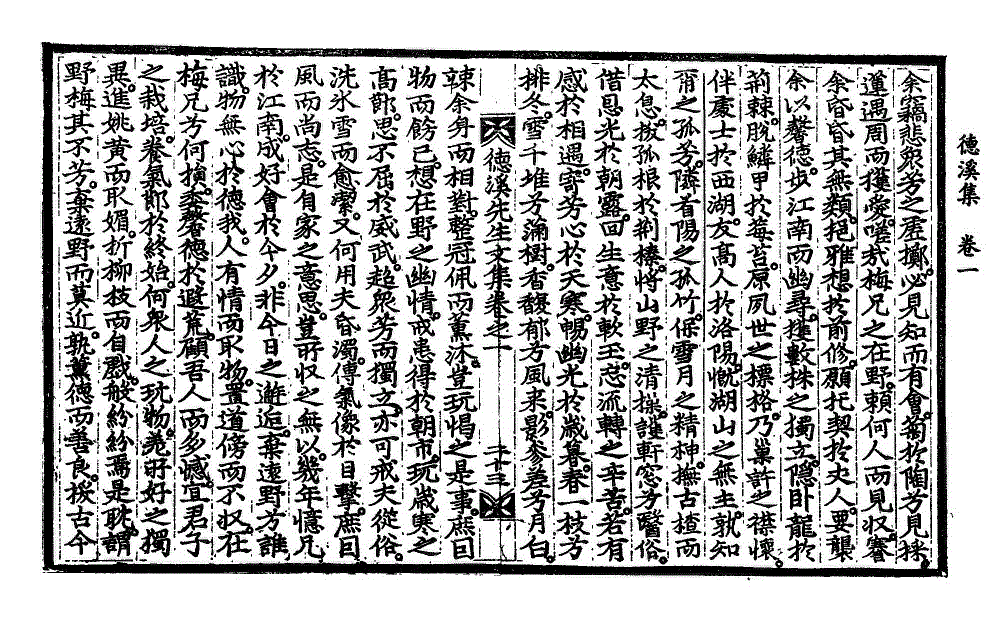 德溪集 卷一
余竊悲衆芳之虛擲心見知而有會菊於陶兮見採
蓮遇周而攫愛嗟哉梅兄之在野賴何人而見收謇
余昏昏其無類抱雅想於前修願托契於夫人要襲
余以馨德步江南而幽尋摟數株之獨立隱卧龍於
荊棘脫鱗甲於莓苔原夙世之標格乃巢許之襟懷
伴處士於西湖友高人於洛陽慨湖山之無主孰知
爾之孤芳隣首陽之孤竹保雪月之精神撫古楂而
太息拔孤根於荆榛將山野之清操謹軒窓兮醫俗
借恩光於朝露回生意於軟玉忘流轉之辛苦若有
感於相遇寄芳心於天寒暢幽光於歲暮春一枝兮
排冬雪千堆兮滿樹香馥郁兮風來影參差兮月白
德溪先生文集卷之一 二十三
竦余身而相對整冠佩而薰沐豈玩愒之是事庶回
物而飭己想在野之幽情戒患得於朝市玩歲寒之
高節思不屈於威武超衆芳而獨立亦可戒夫從俗
洗氷雪而愈潔又何用夫昏濁傳氣像於目擊庶回
風而尚志是自家之意思豈所收之無以幾年憶兄
於江南成好會於今夕非今日之邂逅棄遠野兮誰
識物無心於德我人有情而取物置道傍而不收在
梅兄兮何損委馨德於遐荒顧吾人而多憾宜君子
之栽培養氣節於終始何衆人之玩物羌好好之獨
異進姚黃而取媚折柳枝而自戲般紛紛焉是耽謂
野梅其不芳棄遠野而莫近孰薰德而善良拔古今